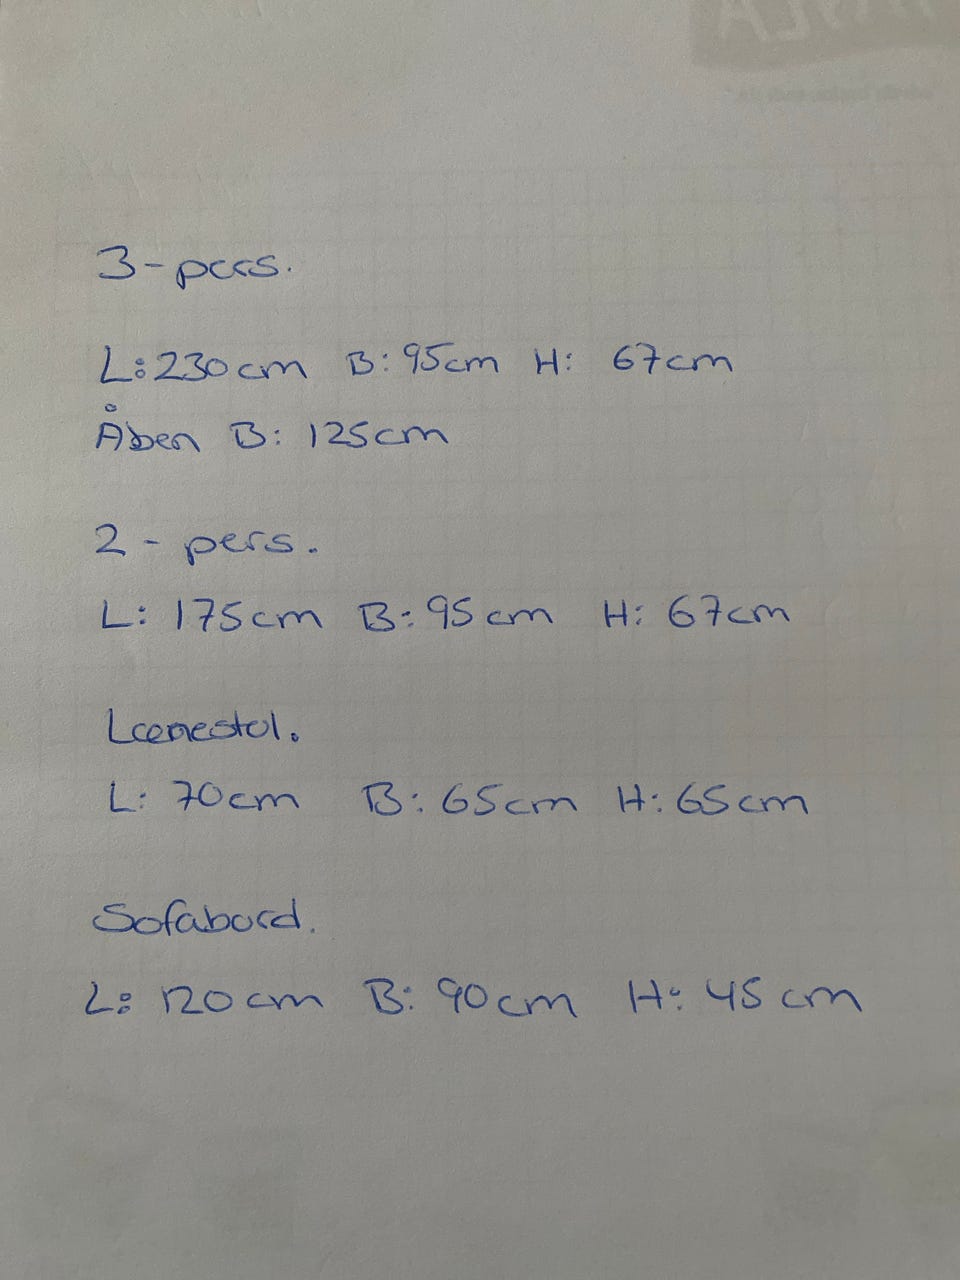 3-pers.
L: 230cm B: 95cm H: 67cm
Åben B: 125cm
2 - pers.
L: 175cm B: 95cm H: 67cm
Lænestol.
L: 70cm B: 65cm H: 65cm
Sofabord.
L: 120cm B: 90cm H: 45cm